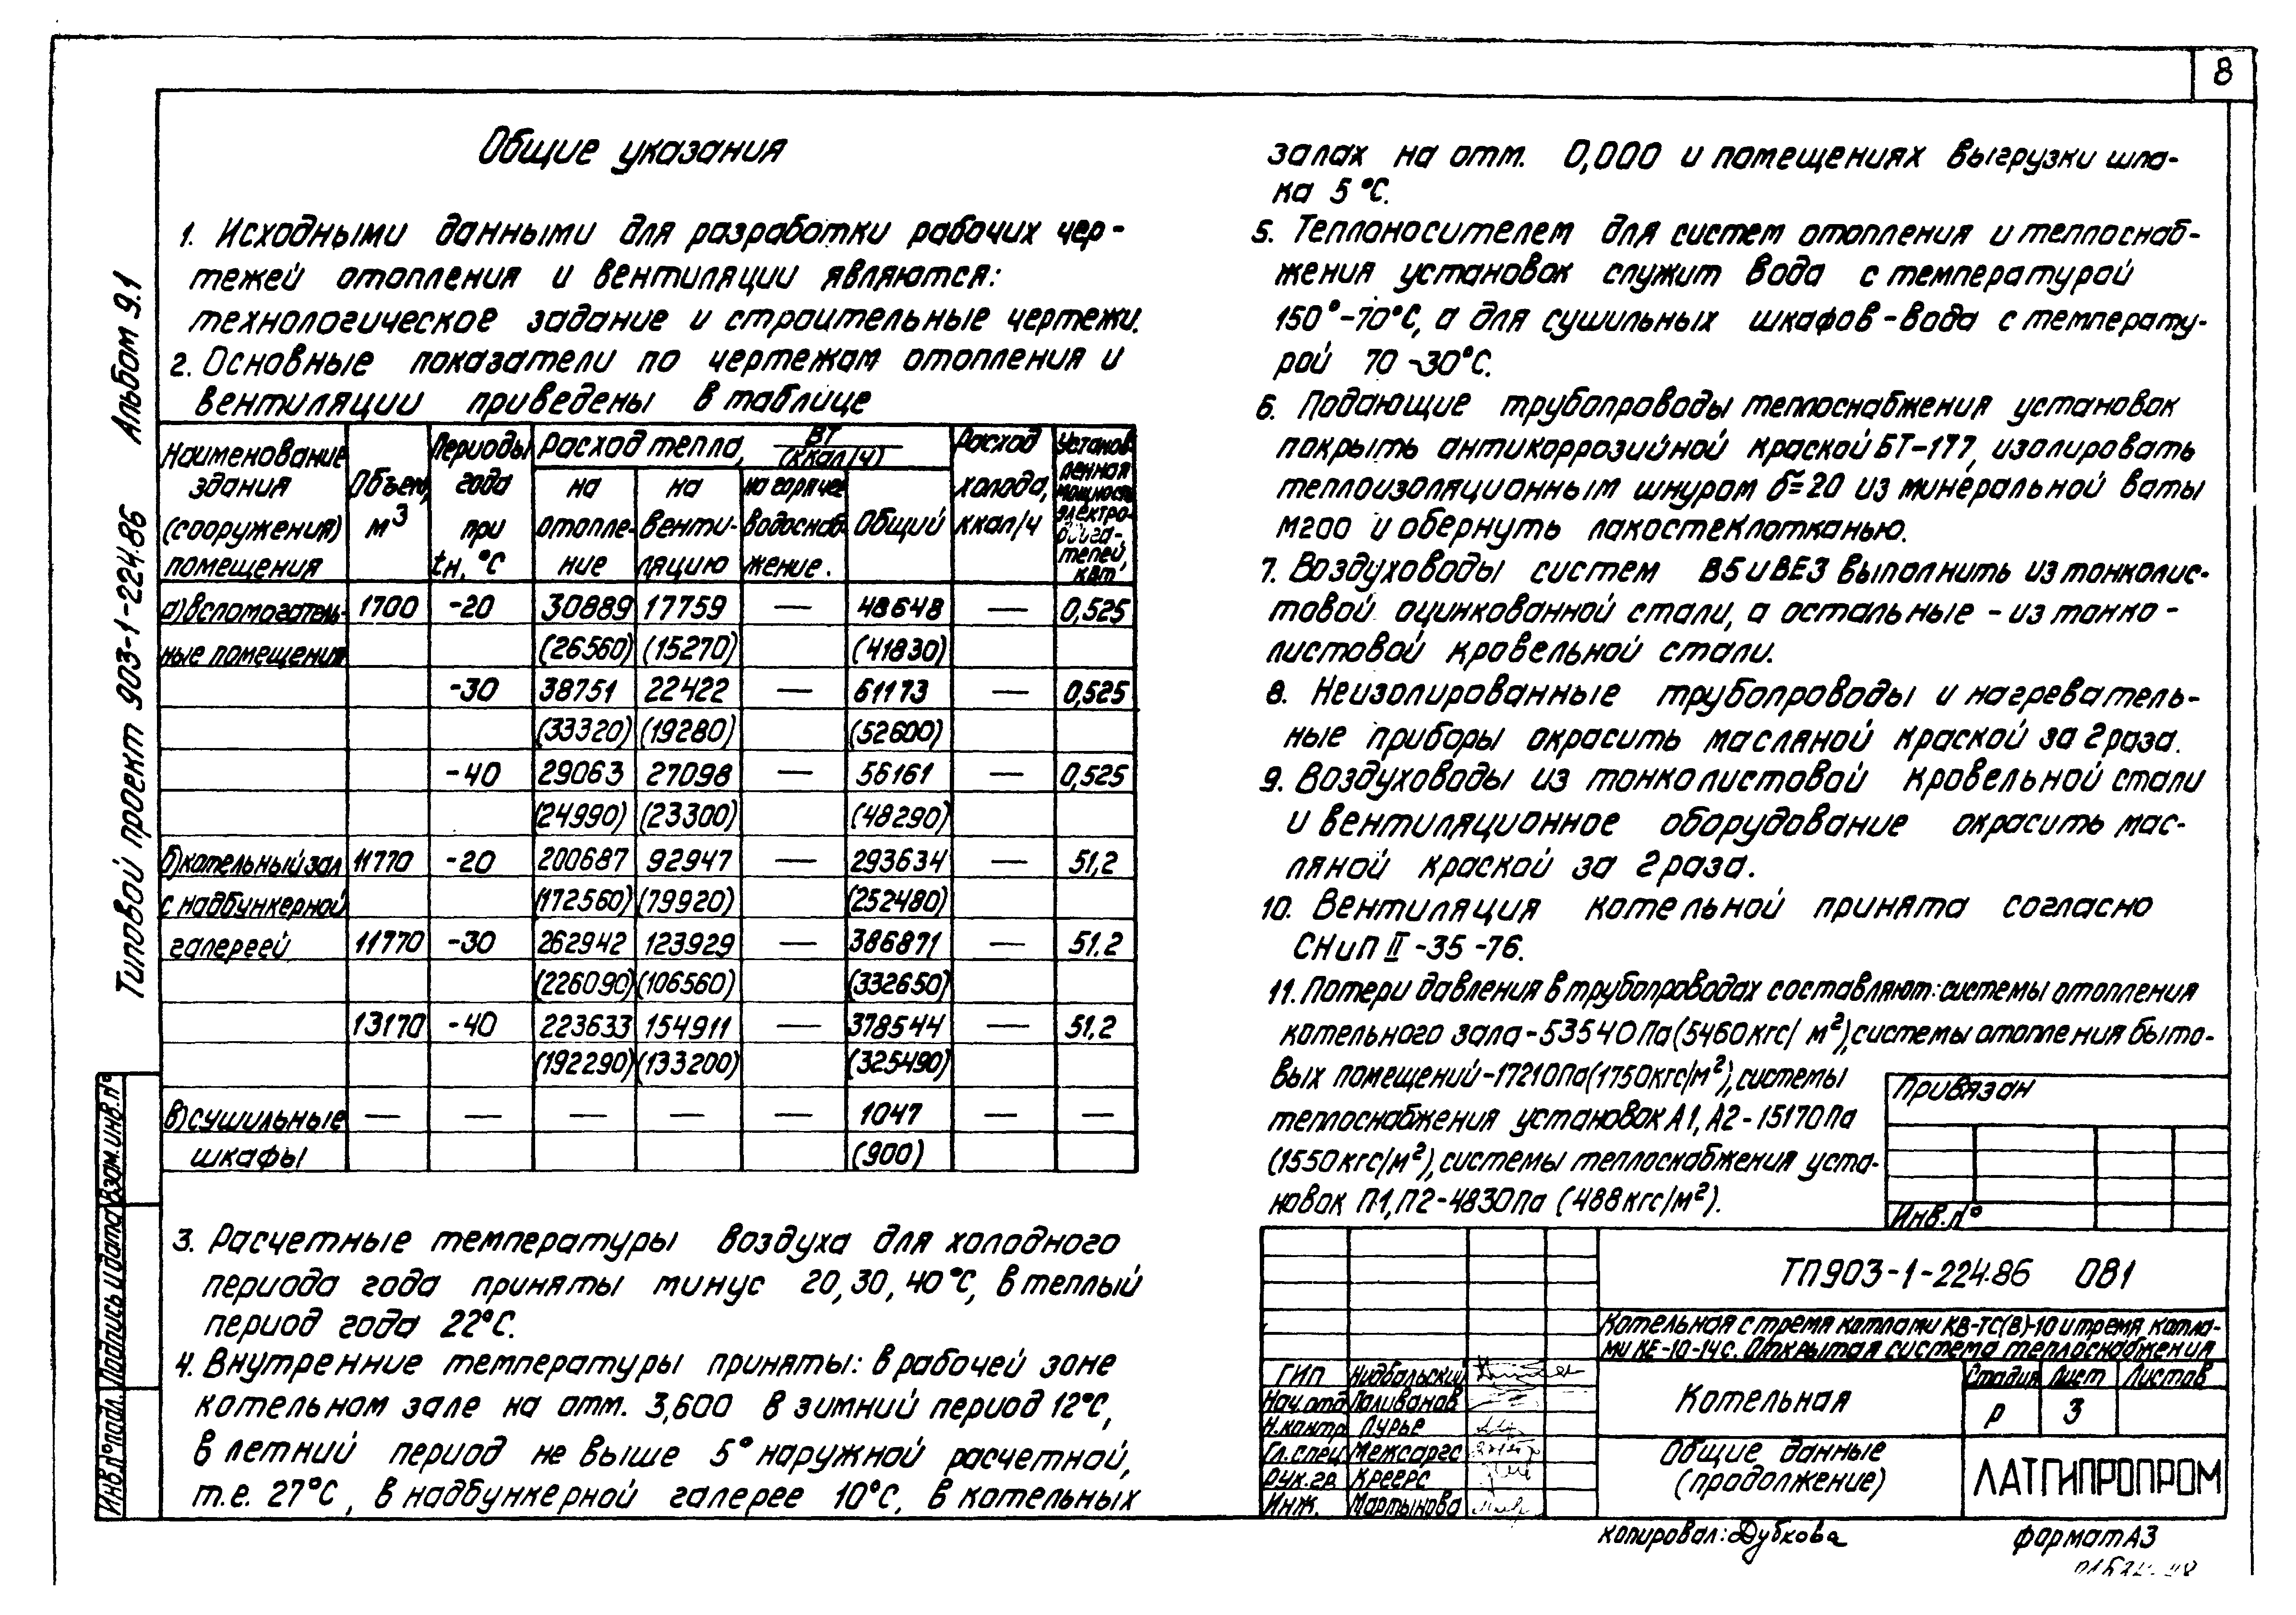 8
Общие указания
1. Исходными данными для разработки рабочих чер-
тежей отопления и вентиляции являются:
технологическое задание и строительные чертежи.
2. Основные показатели по чертежам отопления и
вентиляции приведены в таблице
Наименование здания (сооружения) помещения | Объем, м³ | Периоды года при tн, °С | Расход тепла, Вт/(ккал/ч) | Расход холода, ккал/ч | Установленная мощность электродвигателей, кВт
на отопление | на вентиляцию | на горячее водоснабжение. | Общий
а) вспомогатель- 1700 -20 30889 17759 — 48648 — 0,525
ные помещения (26560) (15270) (41830)
-30 38751 22422 — 61173 — 0,525
(33320) (19280) (52600)
-40 29063 27098 — 56161 — 0,525
(24990) (23300) (48290)
б) котельный зал 11770 -20 200687 92947 — 293634 — 51,2
с надбункерной (172560) (79920) (252480)
галереей 11770 -30 262942 123929 — 386871 — 51,2
(226090) (106560) (332650)
13170 -40 223633 154911 — 378544 — 51,2
(192290) (133200) (325490)
в) сушильные — — — — — 1047 — —
шкафы (900)
3. Расчетные температуры воздуха для холодного
периода года приняты минус 20, 30, 40°С, в теплый
период года 22°С.
4. Внутренние температуры приняты: в рабочей зоне
котельном зале на отм. 3,600 в зимний период 12°С,
в летний период не выше 5° наружной расчетной,
т.е. 27°С, в надбункерной галерее 10°С, в котельных
залах на отм. 0,000 и помещениях выгрузки шла-
ка 5°С.
5. Теплоносителем для систем отопления и теплоснаб-
жения установок служит вода с температурой
150°-70°С, а для сушильных шкафов - вода с температу-
рой 70-30°С.
6. Подающие трубопроводы теплоснабжения установок
покрыть антикоррозийной краской БТ-177, изолировать
теплоизоляционным шнуром δ=20 из минеральной ваты
М200 и обернуть лакостеклотканью.
7. Воздуховоды систем В5 и ВЕ3 выполнить из тонколис-
товой оцинкованной стали, а остальные - из тонко-
листовой кровельной стали.
8. Неизолированные трубопроводы и нагреватель-
ные приборы окрасить масляной краской за 2 раза.
9. Воздуховоды из тонколистовой кровельной стали
и вентиляционное оборудование окрасить мас-
ляной краской за 2 раза.
10. Вентиляция котельной принята согласно
СНиП II-35-76.
11. Потери давления в трубопроводах составляют: системы отопления
котельного зала - 53540 Па (5460 кгс/м²), системы отопления быто-
вых помещений - 17210 Па (1750 кгс/м²), системы
теплоснабжения установок А1, А2 - 15170 Па
(1550 кгс/м²), системы теплоснабжения уста-
новок П1, П2 - 4830 Па (488 кгс/м²).
Привязан
Инв.n°
ТП903-1-224.86 ОВ1
Котельная с тремя котлами КВ-ТС(В)-10 и тремя котла-
ми КЕ-10-14с. Открытая система теплоснабжения
ГИП Нидбальский
Нач.отд Паливанов
Н.контр Лурье
Гл.спец Межсаргс
Рук.гр. Креерс
Инж. Мартынова
Котельная
Стадия Лист Листов
Р 3
Общие данные
(продолжение)
ЛАТГИПРОПРОМ
копировал: Дубкова
формат А3
Типовой проект 903-1-224.86 Альбом 9.1
Инв.n°подл. Подпись и дата Взам.инв.n°